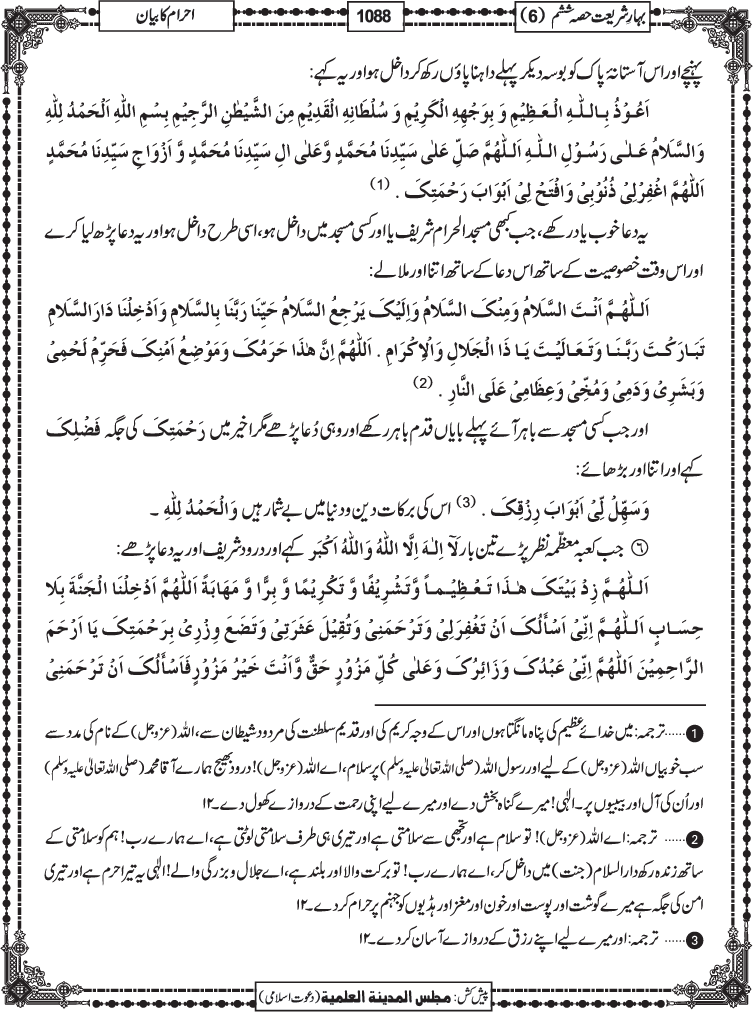 بہارِ شریعت حصہ ششم (6)
1088
احرام کا بیان
پہنچے اور اس آستانۂ پاک کو بوسہ دیکر پہلے داہنا پاؤں رکھ کر داخل ہو اور یہ کہے:
اَعُوْذُ بِاللّٰهِ الْعَظِيْمِ وَ بِوَجْهِهِ الْكَرِيْمِ وَ سُلْطَانِهِ الْقَدِيْمِ مِنَ الشَّيْطٰنِ الرَّجِيْمِ بِسْمِ اللّٰهِ اَلْحَمْدُ لِلّٰهِ
وَالسَّلَامُ عَلٰى رَسُوْلِ اللّٰهِ اَللّٰهُمَّ صَلِّ عَلٰى سَيِّدِنَا مُحَمَّدٍ وَّعَلٰى اٰلِ سَيِّدِنَا مُحَمَّدٍ وَّ اَزْوَاجِ سَيِّدِنَا مُحَمَّدٍ
اَللّٰهُمَّ اغْفِرْلِیْ ذُنُوْبِیْ وَافْتَحْ لِیْ اَبْوَابَ رَحْمَتِکَ . (1)
یہ دعا خوب یاد رکھے، جب کبھی مسجد الحرام شریف یا اور کسی مسجد میں داخل ہو، اسی طرح داخل ہو اور یہ دعا پڑھ لیا کرے
اور اس وقت خصوصیت کے ساتھ اس دعا کے ساتھ اتنا اور ملا لے:
اَللّٰهُمَّ اَنْتَ السَّلَامُ وَمِنْکَ السَّلَامُ وَاِلَيْکَ يَرْجِعُ السَّلَامُ حَيِّنَا رَبَّنَا بِالسَّلَامِ وَاَدْخِلْنَا دَارَالسَّلَامِ
تَبَارَكْتَ رَبَّنَا وَتَعَالَيْتَ يَا ذَا الْجَلَالِ وَالْاِكْرَامِ . اَللّٰهُمَّ اِنَّ هٰذَا حَرَمُکَ وَمَوْضِعُ اَمْنِکَ فَحَرِّمْ لَحْمِیْ
وَبَشَرِیْ وَدَمِیْ وَمُخِّیْ وَعِظَامِیْ عَلَى النَّارِ . (2)
اور جب کسی مسجد سے باہر آئے پہلے بایاں قدم باہر رکھے اور وہی دُعا پڑھے مگر اخیر میں رَحْمَتِکَ کی جگہ فَضْلِکَ
کہے اور اتنا اور بڑھائے:
وَسَهِّلْ لِّیْ اَبْوَابَ رِزْقِکَ . (3) اس کی برکات دین و دنیا میں بے شمار ہیں وَالْحَمْدُ لِلّٰهِ ۔
⑥ جب کعبہ معظّمہ نظر پڑے تین بار لَآ اِلٰهَ اِلَّا اللّٰهُ وَاللّٰهُ اَكْبَر کہے اور درود شریف اور یہ دعا پڑھے:
اَللّٰهُمَّ زِدْ بَيْتَکَ هٰذَا تَعْظِيْمًا وَّتَشْرِيْفًا وَّ تَكْرِيْمًا وَّ بِرًّا وَّ مَهَابَةً اَللّٰهُمَّ اَدْخِلْنَا الْجَنَّةَ بِلَا
حِسَابٍ اَللّٰهُمَّ اِنِّیْ اَسْاَلُکَ اَنْ تَغْفِرَلِیْ وَتَرْحَمَنِیْ وَتُقِيْلَ عَثْرَتِیْ وَتَضَعَ وِزْرِیْ بِرَحْمَتِکَ يَا اَرْحَمَ
الرَّاحِمِيْنَ اَللّٰهُمَّ اِنِّیْ عَبْدُکَ وَزَائِرُکَ وَعَلٰى كُلِّ مَزُوْرٍ حَقٌّ وَّاَنْتَ خَيْرُ مَزُوْرٍ فَاَسْاَلُکَ اَنْ تَرْحَمَنِیْ
❶......ترجمہ: میں خدائے عظیم کی پناہ مانگتا ہوں اور اس کے وجہ کریم کی اور قدیم سلطنت کی مردود شیطان سے، اللہ (عزوجل) کے نام کی مدد سے
سب خوبیاں اللہ (عزوجل) کے لیے اور رسول اللہ (صلی اللہ تعالیٰ علیہ وسلم) پر سلام، اے اللہ (عزوجل)! درود بھیج ہمارے آقا محمد (صلی اللہ تعالیٰ علیہ وسلم)
اور اُن کی آل اور بیبیوں پر۔ الٰہی! میرے گناہ بخش دے اور میرے لیے اپنی رحمت کے دروازے کھول دے۔ ۱۲
❷...... ترجمہ: اے اللہ (عزوجل)! تو سلام ہے اور تجھی سے سلامتی ہے اور تیری ہی طرف سلامتی لوٹتی ہے، اے ہمارے رب! ہم کو سلامتی کے
ساتھ زندہ رکھ دارالسلام (جنت) میں داخل کر، اے ہمارے رب! تو برکت والا اور بلند ہے، اے جلال و بزرگی والے! الٰہی یہ تیرا حرم ہے اور تیری
امن کی جگہ ہے میرے گوشت اور پوست اور خون اور مغز اور ہڈیوں کو جہنم پر حرام کر دے۔ ۱۲
❸...... ترجمہ: اور میرے لیے اپنے رزق کے دروازے آسان کر دے۔ ۱۲
پیش کش: مجلس المدینۃ العلمیۃ (دعوت اسلامی)